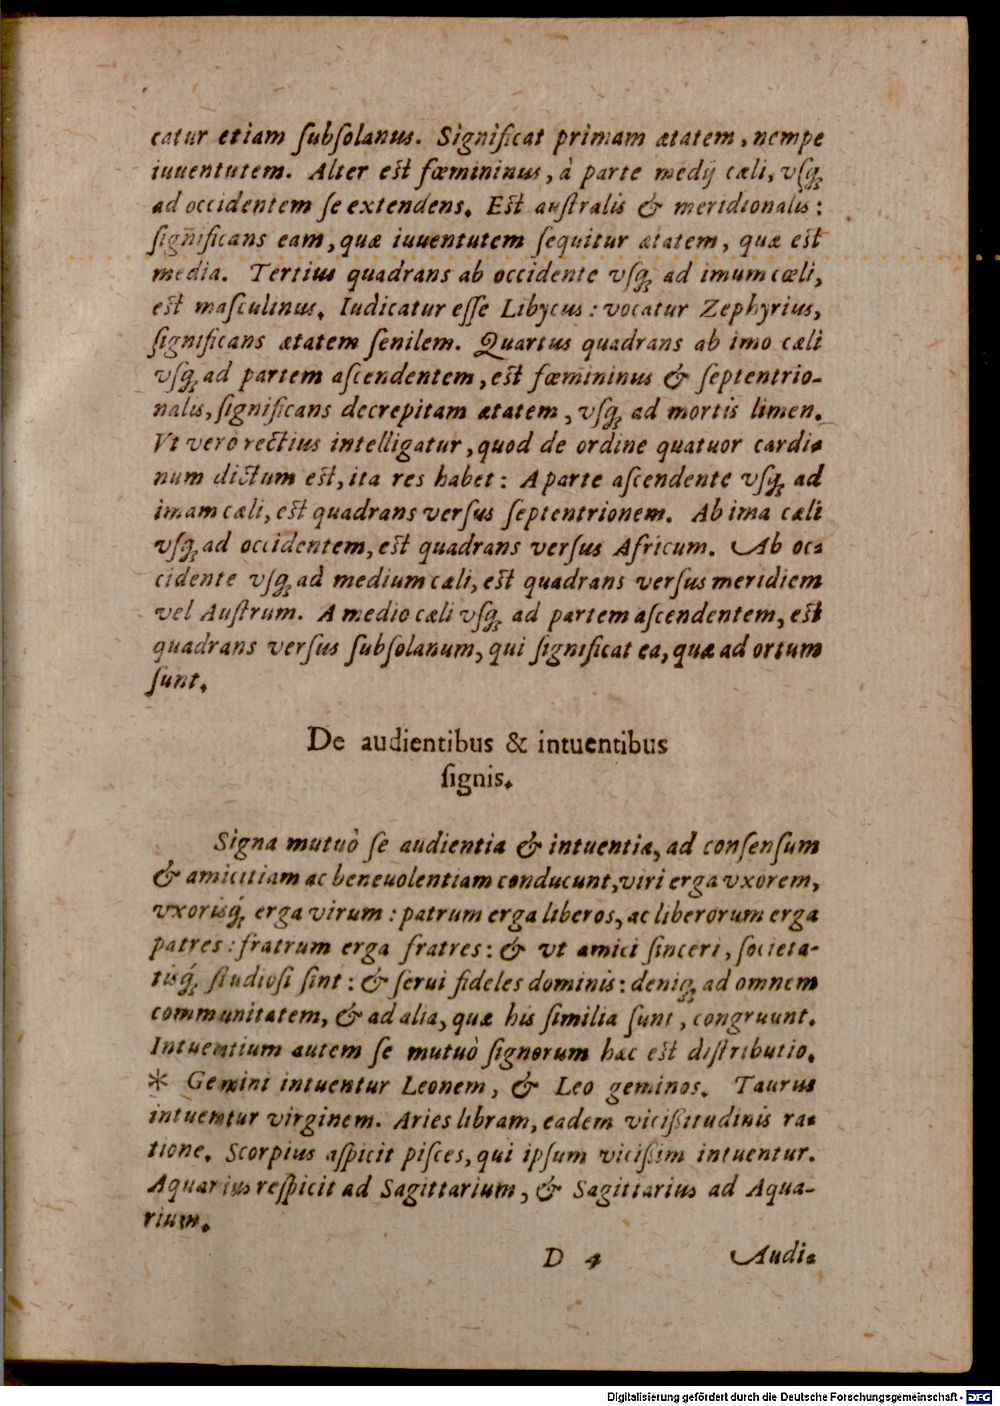 catur etiam ſubſolanus. Significat primam ætatem, nempe
iuuentutem. Alter eſt fœmininus, à parte medij cæli, vſq́;
ad occidentem ſe extendens. Eſt auſtralis & meridionalis:
ſignificans eam, quæ iuuentutem ſequitur ætatem, quæ eſt
media. Tertius quadrans ab occidente vſq́; ad imum cœli,
eſt maſculinus. Iudicatur eſſe Libycus: vocatur Zephyrius,
ſignificans ætatem ſenilem. Quartus quadrans ab imo cæli
vſq́; ad partem aſcendentem, eſt fœmininus & ſeptentrio-
nalis, ſignificans decrepitam ætatem, vſq́; ad mortis limen.
Vt vero rectius intelligatur, quod de ordine quatuor cardi-
num dictum eſt, ita res habet: A parte aſcendente vſq́; ad
imam cæli, eſt quadrans verſus ſeptentrionem. Ab ima cæli
vſq́; ad occidentem, eſt quadrans verſus Africum. Ab oc-
cidente vſq́; ad medium cæli, eſt quadrans verſus meridiem
vel Auſtrum. A medio cæli vſq́; ad partem aſcendentem, eſt
quadrans verſus ſubſolanum, qui ſignificat ea, quæ ad ortum
ſunt.
De audientibus & intuentibus
ſignis.
Signa mutuò ſe audientia & intuentia, ad conſenſum
& amicitiam ac beneuolentiam conducunt, viri erga vxorem,
vxorisq́; erga virum: patrum erga liberos, ac liberorum erga
patres: fratrum erga fratres: & vt amici ſinceri, ſocieta-
tisq́; ſtudioſi ſint: & ſerui fideles dominis: deniq́; ad omnem
communitatem, & ad alia, quæ his ſimilia ſunt, congruunt.
Intuentium autem ſe mutuò ſignorum hæc eſt diſtributio.
* Gemini intuentur Leonem, & Leo geminos. Taurus
intuentur virginem. Aries libram, eadem viciſsitudinis ra-
tione. Scorpius aſpicit piſces, qui ipſum viciſsim intuentur.
Aquarius reſpicit ad Sagittarium, & Sagittarius ad Aqua-
rium.
D 4 Audi-
Digitalisierung gefördert durch die Deutsche Forschungsgemeinschaft - DFG